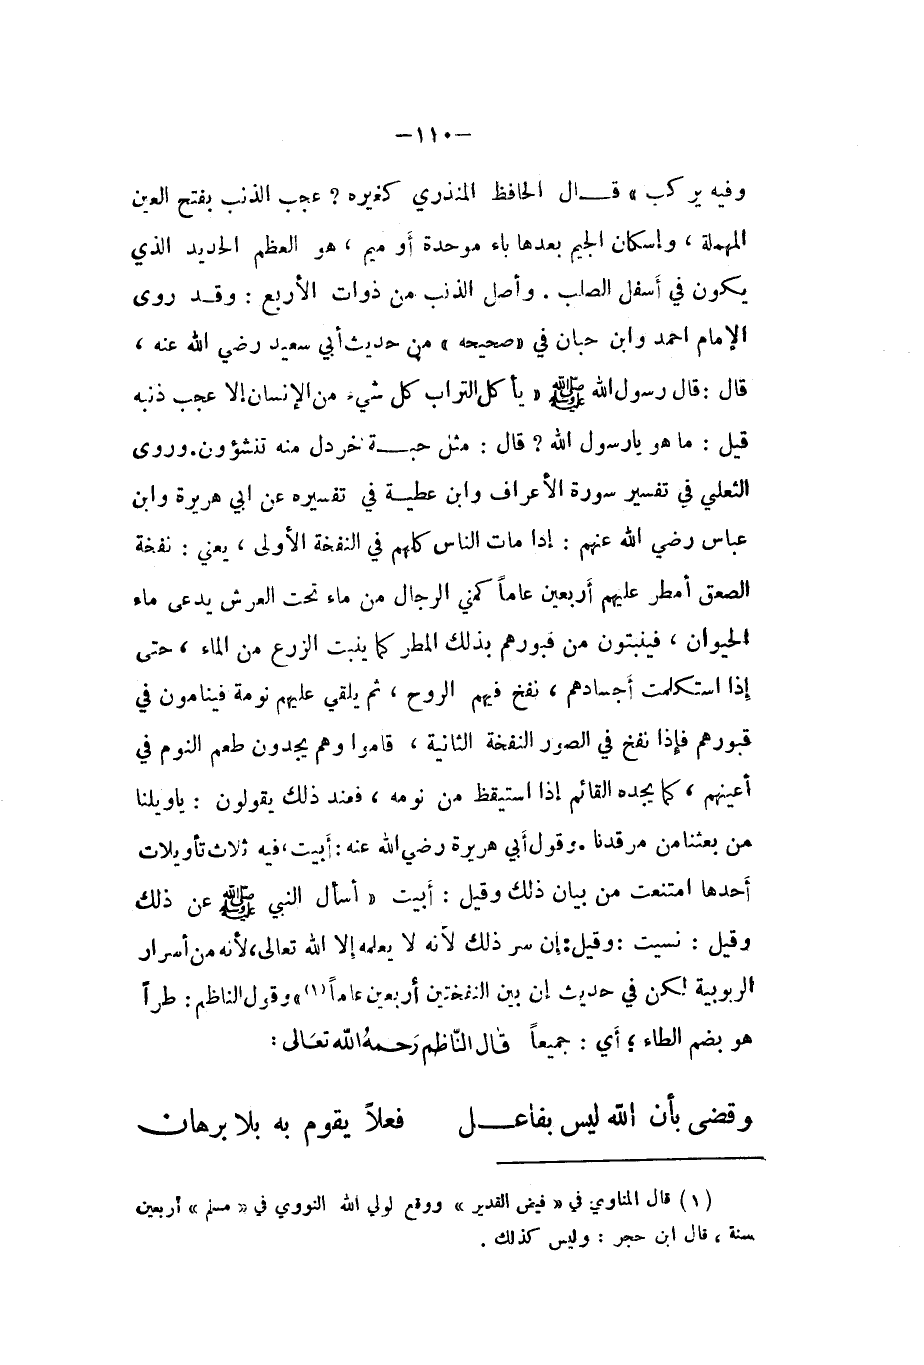 —١١٠—
وفيه يركب » قـــال الحافظ المنذري كغيره ? عجب الذنب بفتح العين
المهملة ، وإسكان الجيم بعدها باء موحدة أو ميم ، هو العظم الحديد الذي
يكون في أسفل الصلب . وأصل الذنب من ذوات الأربع : وقـد روى
الإمام احمد وابن حبان في «صحيحه » من حديث أبي سعيد رضي الله عنه ،
قال : قال رسول الله ﷺ « يأكل التراب كل شيء من الإنسان إلا عجب ذنبه
قيل : ما هو يارسول الله ? قال : مثل حبـــة خردل منه تنشؤون . وروى
الثعلبي في تفسير سورة الأعراف وابن عطيـة في تفسيره عن ابي هريرة وابن
عباس رضي الله عنهم : إذا مات الناس كلهم في النفخة الأولى ، يعني : نفخة
الصعق أمطر عليهم أربعين عاماً كمني الرجال من ماء تحت العرش يدعى ماء
الحيوان ، فينبتون من قبورهم بذلك المطر كما ينبت الزرع من الماء ، حتى
إذا استكملت أجسادهم ، نفخ فيهم الروح ، ثم يلقي عليهم نومة فينامون في
قبورهم فإذا نفخ في الصور النفخة الثانية ، قاموا وهم يجدون طعم النوم في
أعينهم ، كما يجده القائم إذا استيقظ من نومه ، فعند ذلك يقولون : ياويلنا
من بعثنا من مرقدنا . وقول أبي هريرة رضي الله عنه : أبيت ، فيه ثلاث تأويلات
أحدها امتنعت من بيان ذلك وقيل : أبيت « أسأل النبي ﷺ عن ذلك
وقيل : نسيت : وقيل : إن سر ذلك لأنه لا يعلمه إلا الله تعالى ، لأنه من أسرار
الربوبية لكن في حديث إن بين النفختين أربعين عاماً (١) » وقول الناظم : طراً
هو بضم الطاء ؛ أي : جميعاً قَال النّاظم رَحمهُ الله تعَالى :
وقضى بأن الله ليس بفاعـــل فعلاً يقوم به بلا برهان
(١) قال المناوي في « فيض القدير » ووقع لولي الله النووي في « مسلم » أربعين
سنة ، قال ابن حجر : وليس كذلك .